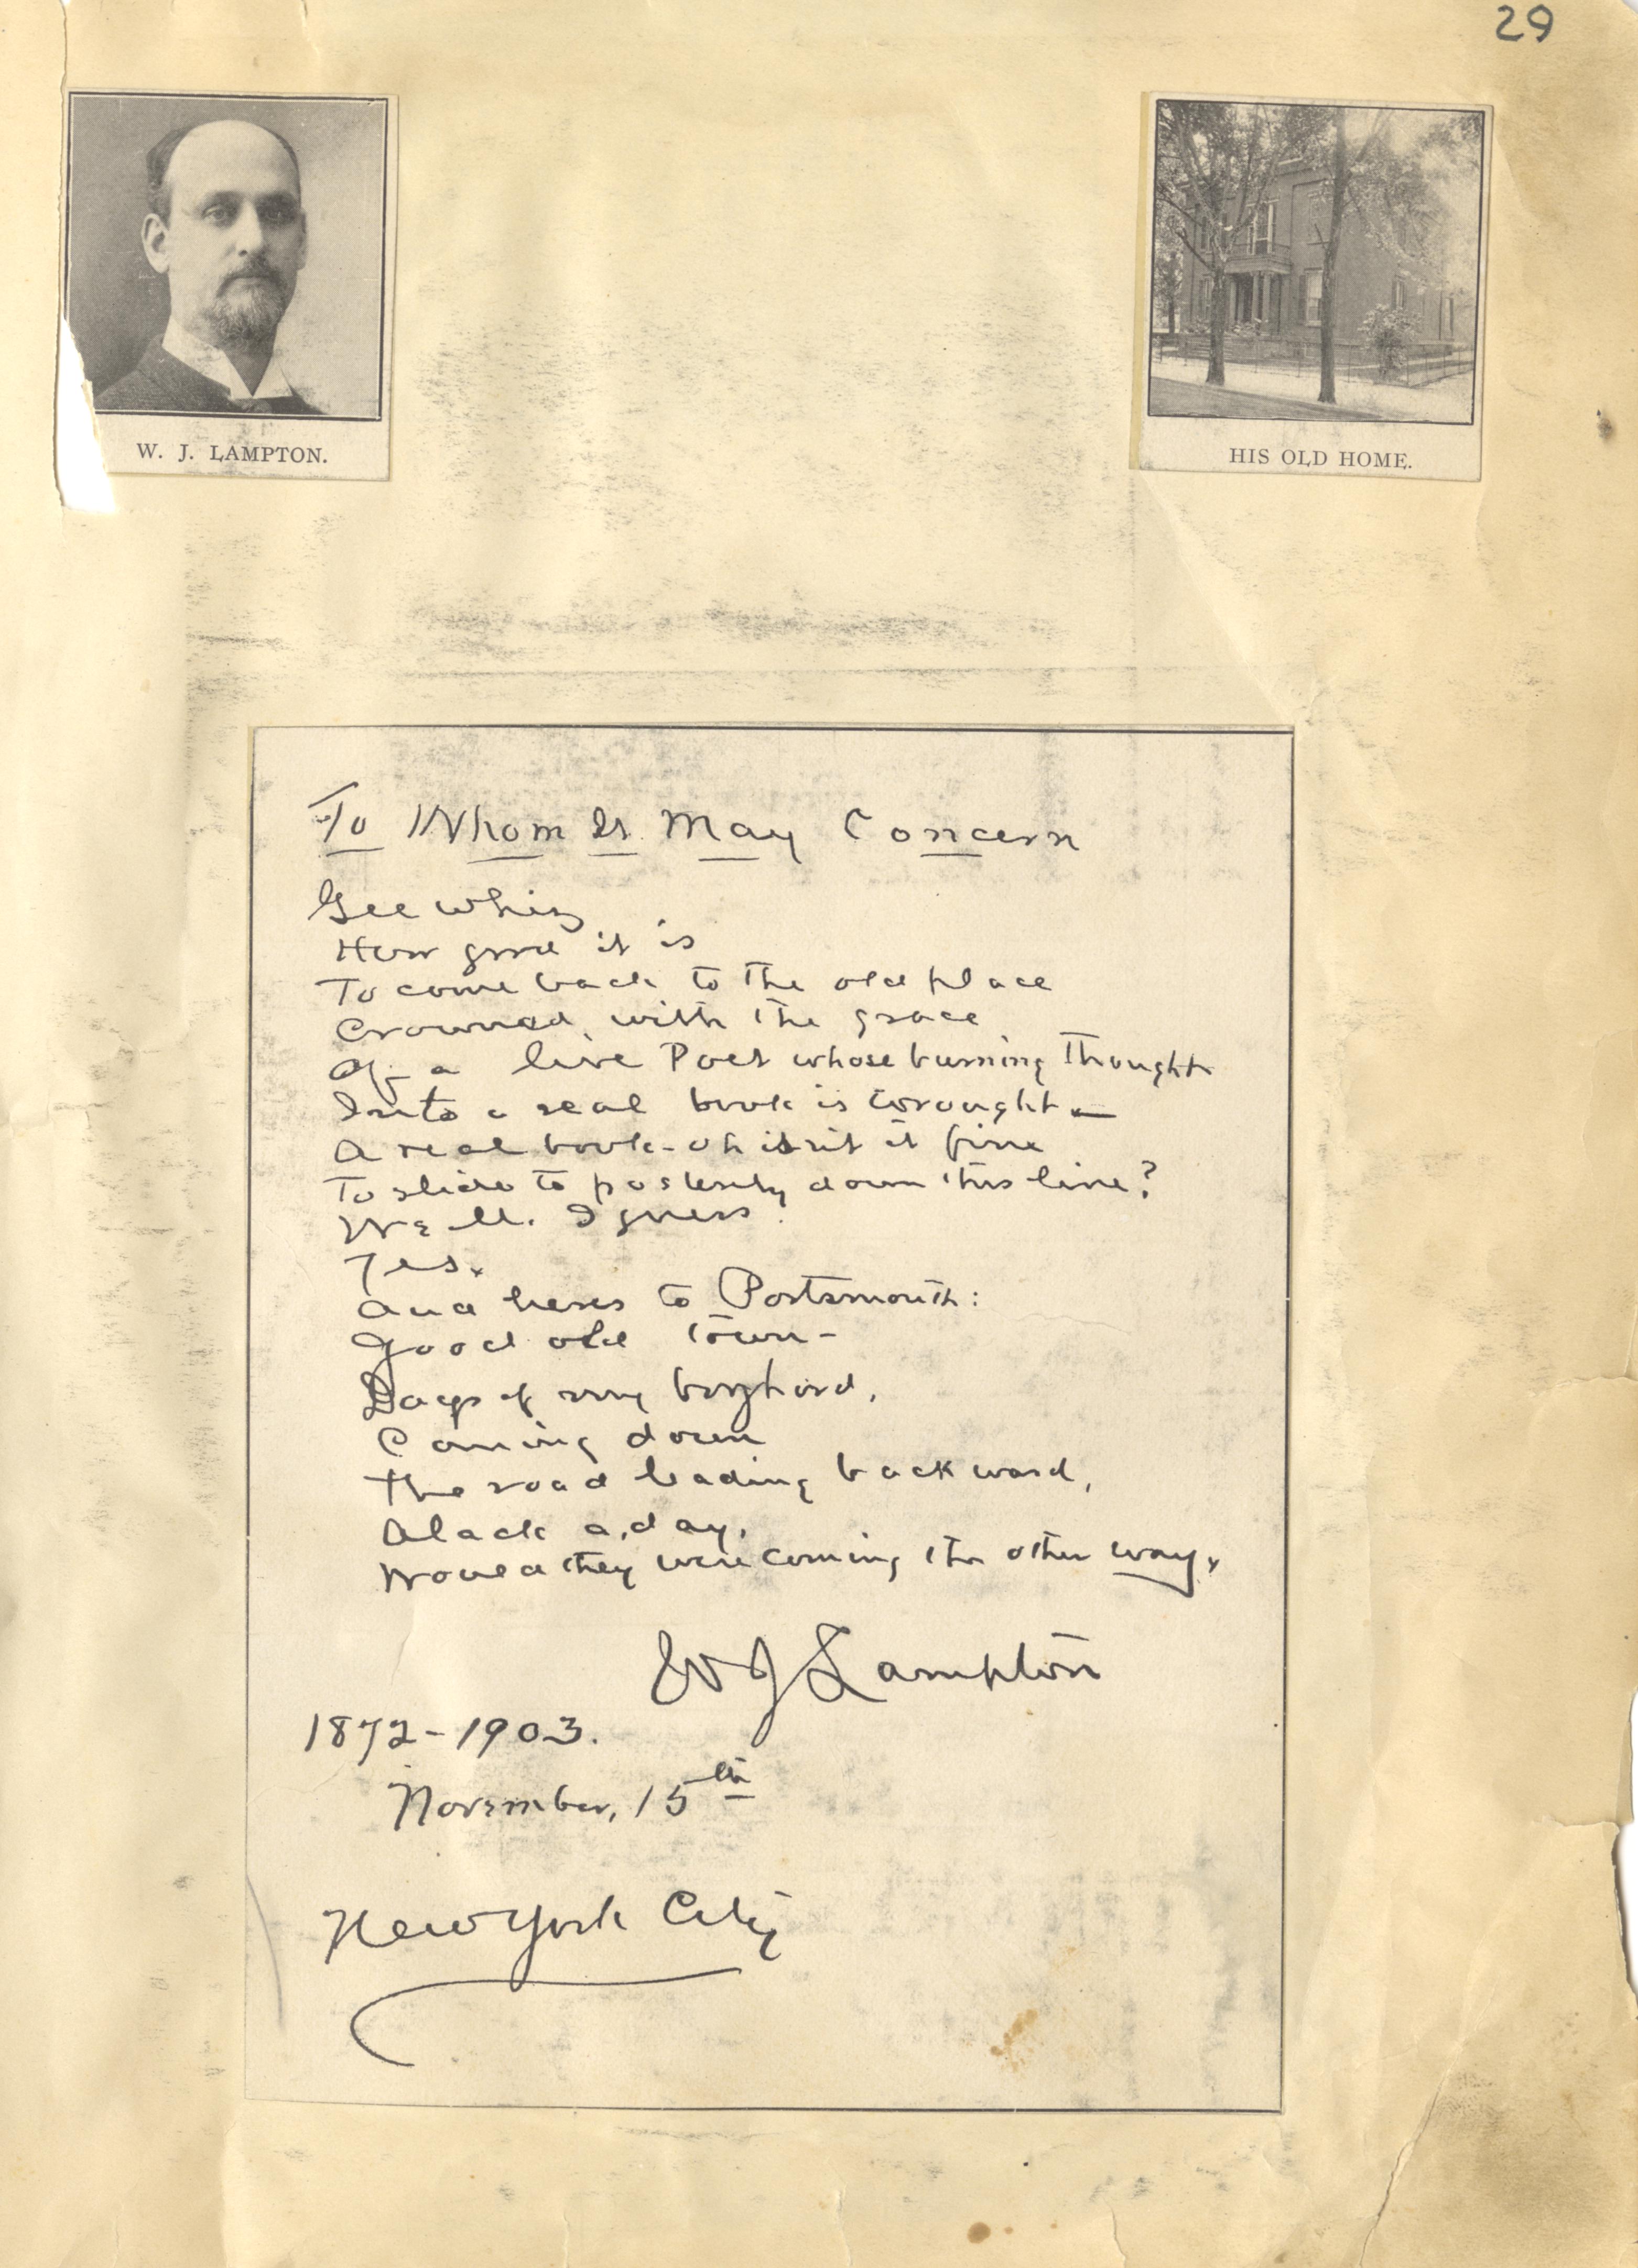 29
W. J. LAMPTON.
HIS OLD HOME.
To Whom It May Concern
Gee whiz
How good it is
To come back to the old place
Crowned, with the grace
Of a live Poet whose burning thought
Into a real book is wrought —
A real book - oh isn't it fine
To slide to posterity down this line?
Well. I guess.
Yes.
And heres to Portsmouth:
Good old town -
Days of my boyhood,
Coming down
The road leading backward,
Alack a, day,
Would they were coming the other way.
W J Lampton
1872 - 1903.
November, 15th
New York City